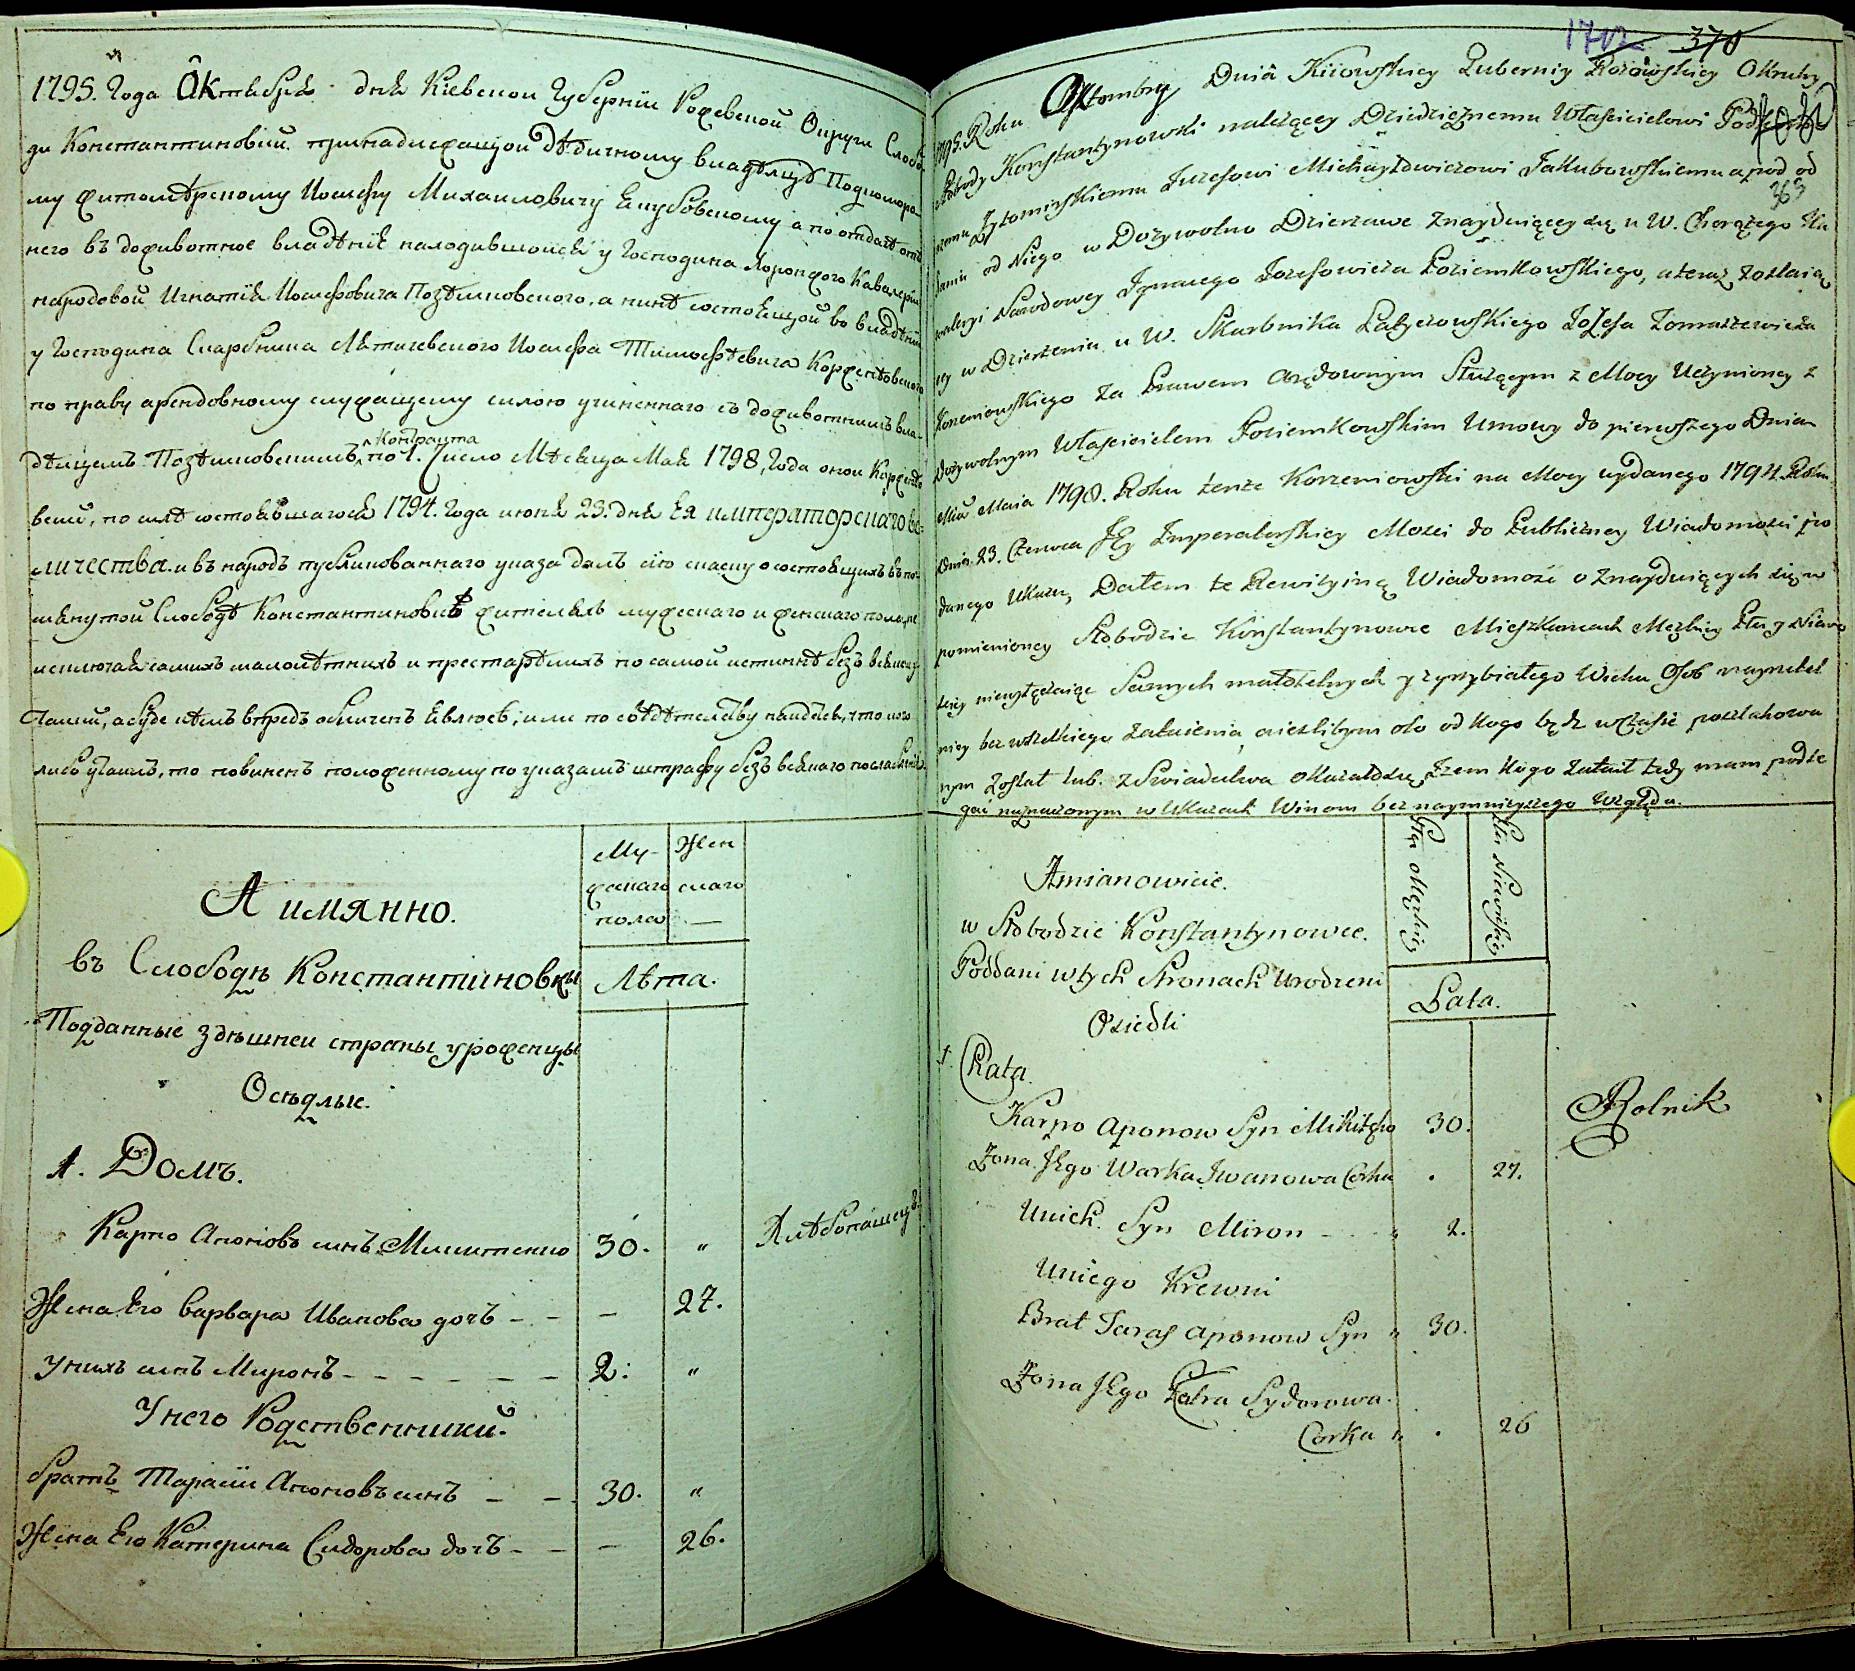 1795. Года Октября дня Кіевской Губерніи Рожевской Округи Слобо
ды Константиновки принадлежащой дѣдичному владѣлцу Подкомора-
му Житомѣрскому Иосифу Михаиловичу Якубовскому а по отдачѣ отъ
него въ доживотное владѣніе находившойся у Господина Хоронжого Кавалеріи
народовой Игнатія Иосифовича Позѣмковского, а нинѣ состоящой во владѣніи
у Господина Скарбника Лѣтичевского Иосифа Тимофѣевича Корженѣовского
по праву арендовному служащему силою учиненнаго съ доживотнимъ вла-
дѣлцемъ Позѣмковскимъ контракта по 1. Число Мѣсяца Мая 1798, Года онои Корженѣо
вский, по силѣ состоявшагося 1794. Года июня 23. дня Ея императорскаго ве-
личества и въ народъ публикованнаго указа далъ сію сказку о состоящихъ въ по-
мянутой Слободѣ Константиновкѣ жителяхъ мужескаго и женскаго пола, не
исключая самихъ малолѣтнихъ и престарѣлихъ по самой истиннѣ безъ всякой у-
таики, а буде кѣмъ впредь обличенъ явлюсь, или по свѣдѣтелству найдется, что кого
либо утаилъ, то повиненъ положенному по указамъ штрафу безъ всякаго послабленія.
А имянно.
Му-
жескаго
пола
Жен
скаго
въ Слободѣ Константиновкы
Лѣта.
Подданные здѣшнеи страны уроженцы
Осѣдлые.
1. Домъ.
Карпо Апоновъ синъ Микитенко 30. „ Хлѣбопашецъ
Жена Его Варвара Иванова дочъ - - — 27.
У нихъ синъ Миронъ - - - - - - 2. „
У него Родственники.
братъ Тарасіи Апоновъ синъ - - 30. „
Жена Его Катерина Сидорова дочъ - - — 26.
1712 370
1795. Roku Oktombra Dnia Kiiowskiey Gubernij Rożowskiey Okruhy
Słobody Konstantynowki należącey Dziedzicznemu Właścicielowi Podkomo
rzemu Zytomirskiemu Juzefowi Michayłowiczowi Jakubowskiemu a pod od
369
daniu od Niego w Dożywotno Dzierzawe znayduiącey się u W. Chorążego Ka
waleryi Narodowey Ignacego Jozefowicza Poziemkowskiego, a teraz zostaią
cey w Dzierżeniu u W. Skarbnika Latyczowskiego Jozefa Tomaszewicza
Korzeniowskiego za Prawem Arędownym Służącym z Mocy Uczynioney z
Dożywotnym Właścicielem Poziemkowskim Umowy do pierwszego Dnia
Mca Maia 1798. Roku tenże Korzeniowski na Mocy wydanego 1794. Roku
Dnia 23. Czerwca JEy Imperatorskiey Mości do Publiczney Wiadomości po
danego Ukazu, Dałem te Rewizyiną Wiadomość o Znayduiących się w
pomienioney Słobodzie Konstantynowce Mieszkancach Męzkiey Płci y Niewi
ściey niewyłączaiąc Samych małoletnych y zgrzybiałego Wieku Osob nayrzetel
niey bez wszelkiego zataienia, a ieżlibym oto od kogo bądz w czasie poszlakowa
nym został lub z Swiadectwa okazałosię, Jżem kogo zataił tedy mam podle
gać naznaczonym w Ukazach Winom bez naymnieyszego Względu.
Jmianowicie.
Płci Męzkiey
Płci Niewieściey
w Słobodzie Konstantynowce.
Poddani w tych Stronach Urodzeni
Lata.
Osiedli
1. Chata.
Karpo Aponow Syn Mikitęko 30. Rolnik
Zona JEgo Warka Jwanowa Corka . 27.
Unich Syn Miron - - - „ 2.
Uniego Krewni
Brat Taras Aponow Syn „ 30.
Zona JEgo Katra Sydorowa.
Corka „ . 26